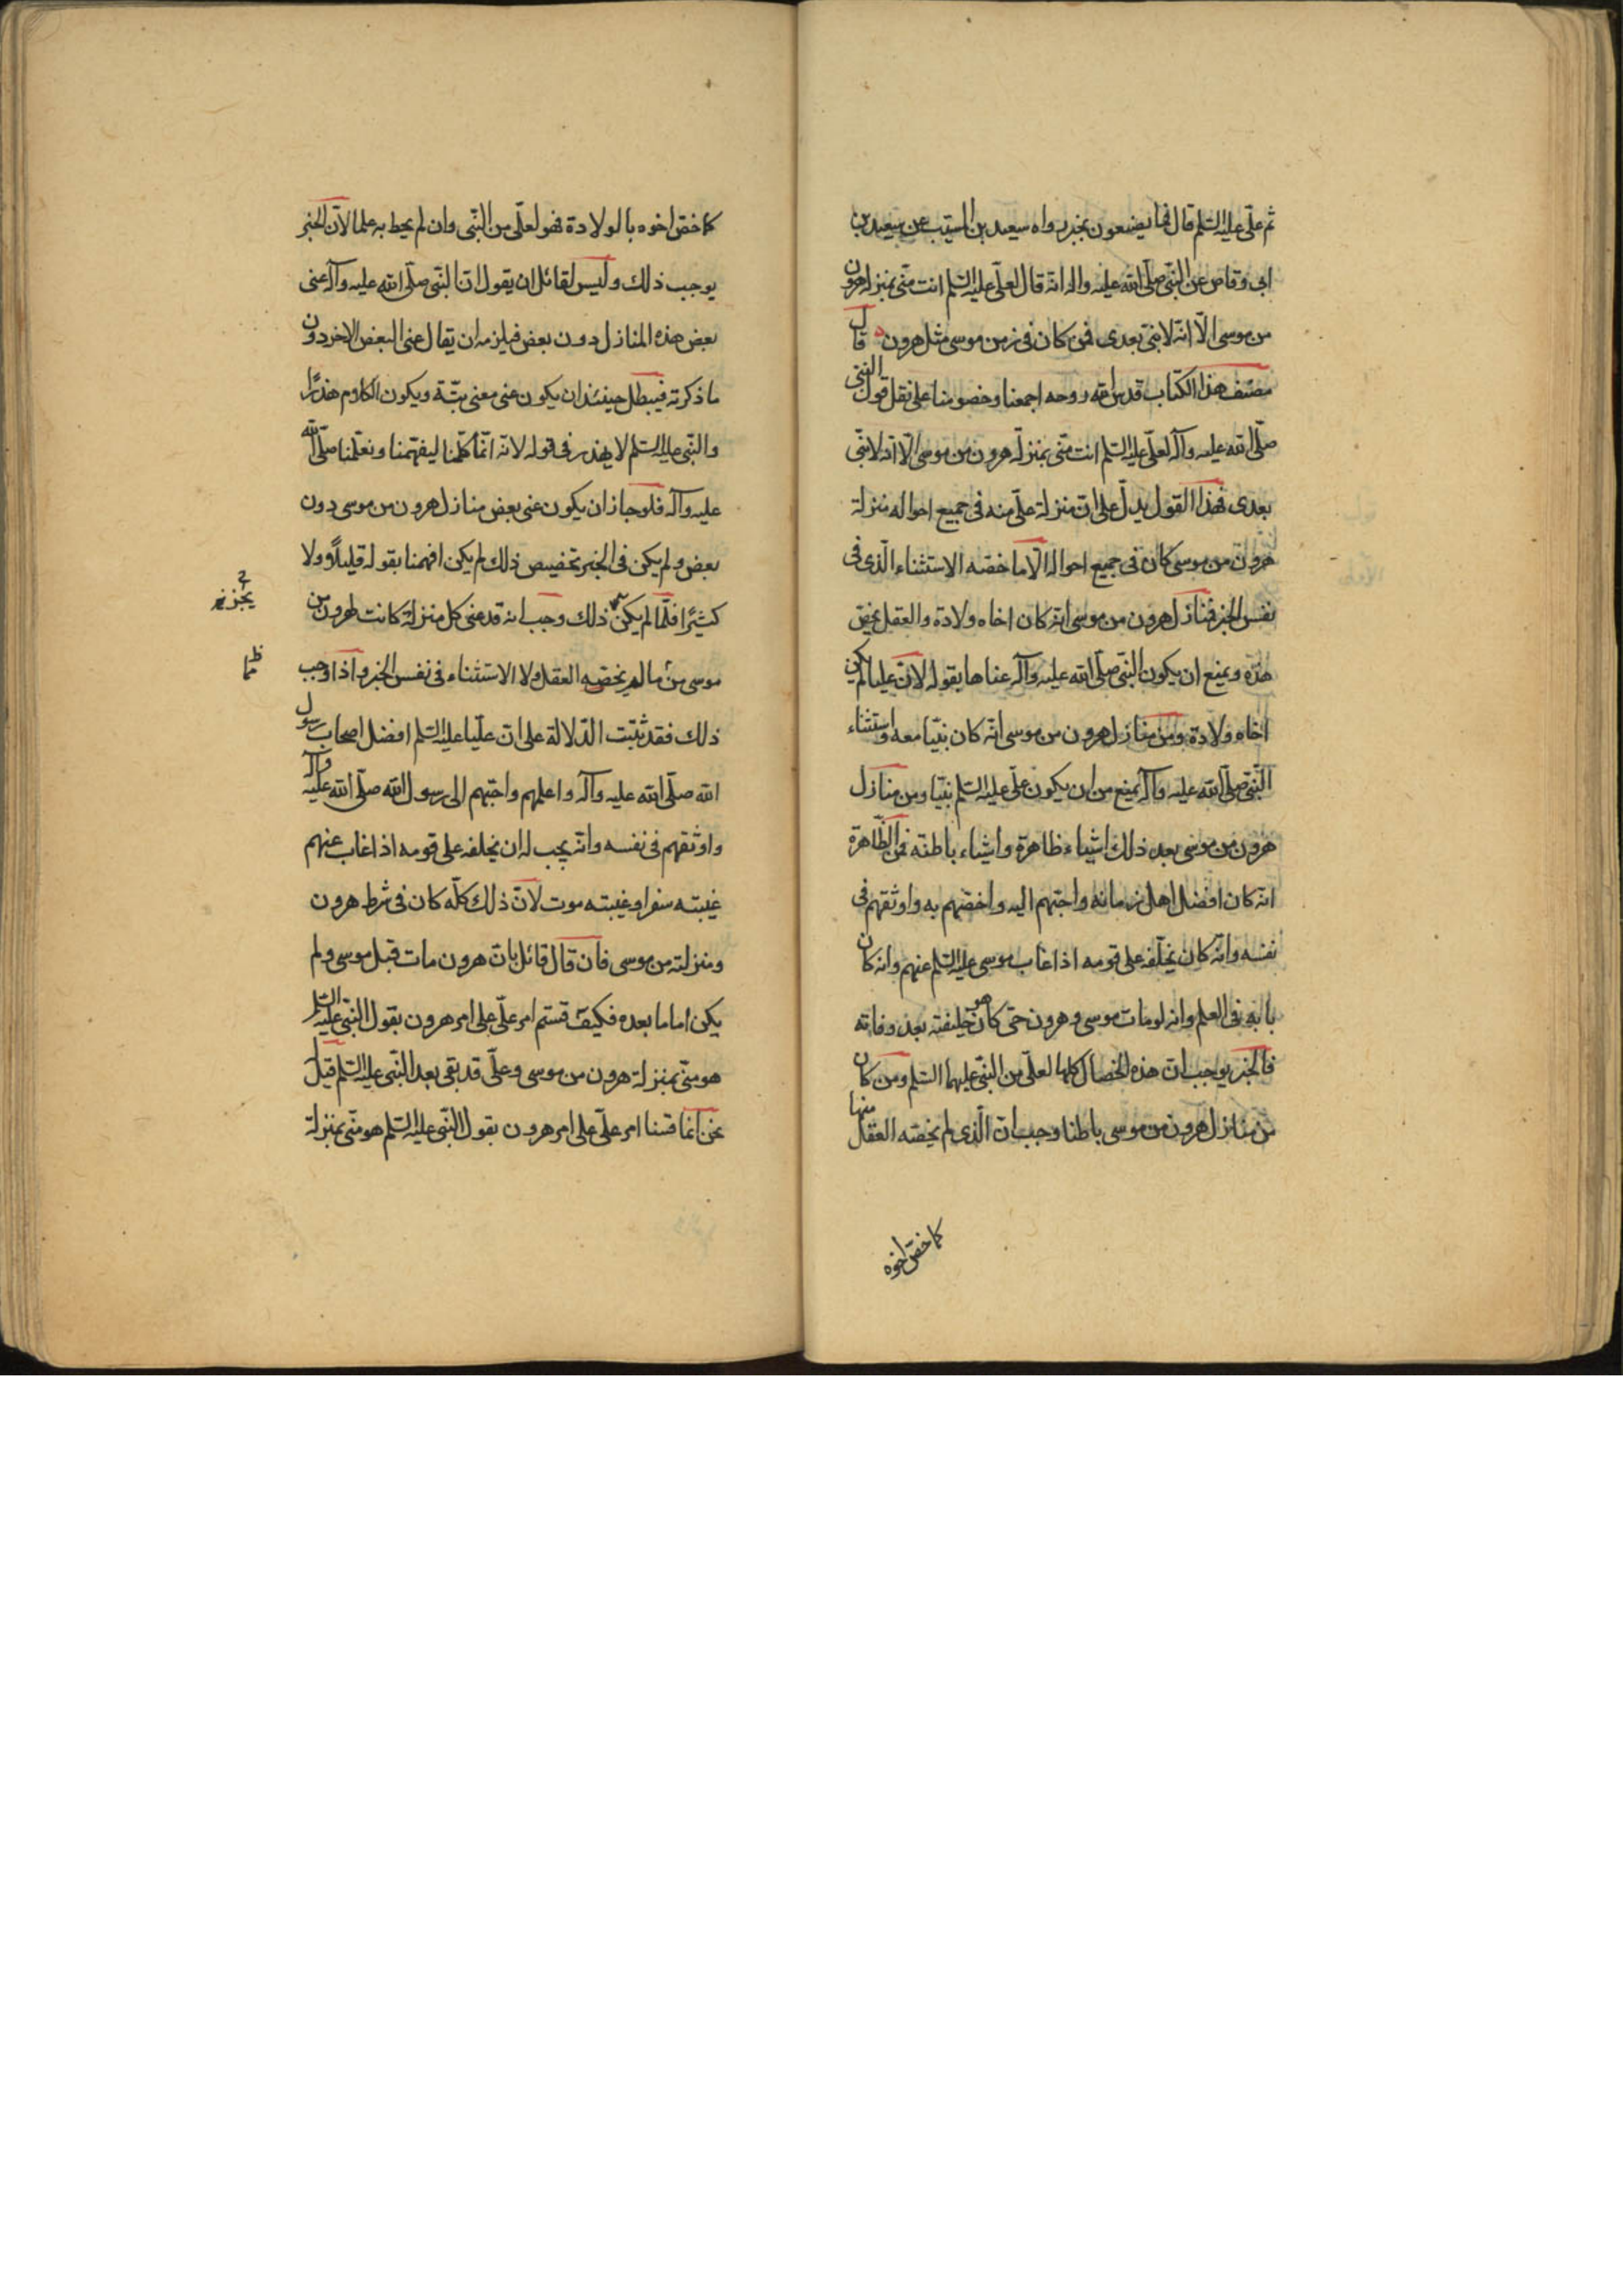 ثم علی علیه السلم قال فما یصنعون بخبر رواه سعید بن المسیب عن سعید بن
ابی وقاص عن النبی صلی الله علیه واله انه قال لعلی علیه السلم انت منی بمنزلة هرون
من موسی الا انه لا نبی بعدی فمن کان فی زمن موسی مثل هرون قال
مصنف هذا الکتاب قدس الله روحه اجمعنا وخصومنا علی نقل قول النبی
صلی الله علیه وآله لعلی علیه السلم انت منی بمنزلة هرون من موسی الا انه لا نبی
بعدی فهذا القول یدل علی ان منزلة علی منه فی جمیع احواله منزلة
هرون من موسی کان فی جمیع احواله الا ما خصه الاستثناء الذی فی
نفس الخبر فمنازل هرون من موسی انه کان اخاه ولادة والعقل یخص
هذه ویمنع ان یکون النبی صلی الله علیه وآله عناها بقوله لان علیا لم یکن
اخاه ولادة ومن منازل هرون من موسی انه کان نبیا معه واستثناء
النبی صلی الله علیه وآله یمنع من ان یکون علی علیه السلم نبیا ومن منازل
هرون من موسی بعد ذلك اشیاء ظاهرة واشیاء باطنه فمن الظاهرة
انه کان افضل اهل زمانه واحبهم الیه واخصهم به واوثقهم فی
نفسه وانه کان یخلفه علی قومه اذا غاب موسی علیه السلم عنهم وانه کان
بابه فی العلم وانه لو مات موسی وهرون حی کان هو خلیفته بعد وفاته
فالخبر یوجب ان هذه الخصال کلها لعلی من النبی علیهما السلم ومن کان
من منازل هرون من موسی باطنا وجب ان الذی لم یخصه العقل منها
کما خص اخوه
کما خص اخوه بالولادة فهو لعلی من النبی وان لم یحط به علما لان الخبر
یوجب ذلك ولیس لقائل ان یقول ان النبی صلی الله علیه وآله عنی
بعض هذه المنازل دون بعض فیلزمه ان یقال عنی البعض الاخر دون
ما ذکرته فیبطل حینئذ ان یکون عنی معنی بتة ویکون الکلام هذرا
والنبی علیه السلم لا یهذر فی قوله لانه انما کلمنا لیفهمنا ویعلمنا صلی الله
علیه وآله فلو جاز ان یکون عنی بعض منازل هرون من موسی دون
بعض ولم یکن فی الخبر تخصیص ذلك لم یکن افهمنا بقوله قلیلا ولا
کثیرا فلما لم یکن ذلك وجب انه قد عنی کل منزلة کانت لهرون من
موسی من ما لم یخصه العقل ولا الاستثناء فی نفس الخبر واذا وجب
ذلك فقد ثبتت الدلالة علی ان علیا علیه السلم افضل اصحاب رسول
الله صلی الله علیه وآله واعلمهم واحبهم الی رسول الله صلی الله علیه وآله
واوثقهم فی نفسه وانه یجب له ان یخلفه علی قومه اذا غاب عنهم
غیبته سفر او غیبته موت لان ذلك کله کان فی شرط هرون
ومنزلته من موسی فان قال قائل بان هرون مات قبل موسی ولم
یکن اماما بعده فکیف قستم امر علی علی امر هرون بقول النبی علیه السلم
هو منی بمنزلة هرون من موسی وعلی قد بقی بعد النبی علیه السلم قیل
نحن انما قسنا امر علی علی امر هرون بقول النبی علیه السلم هو منی بمنزلة